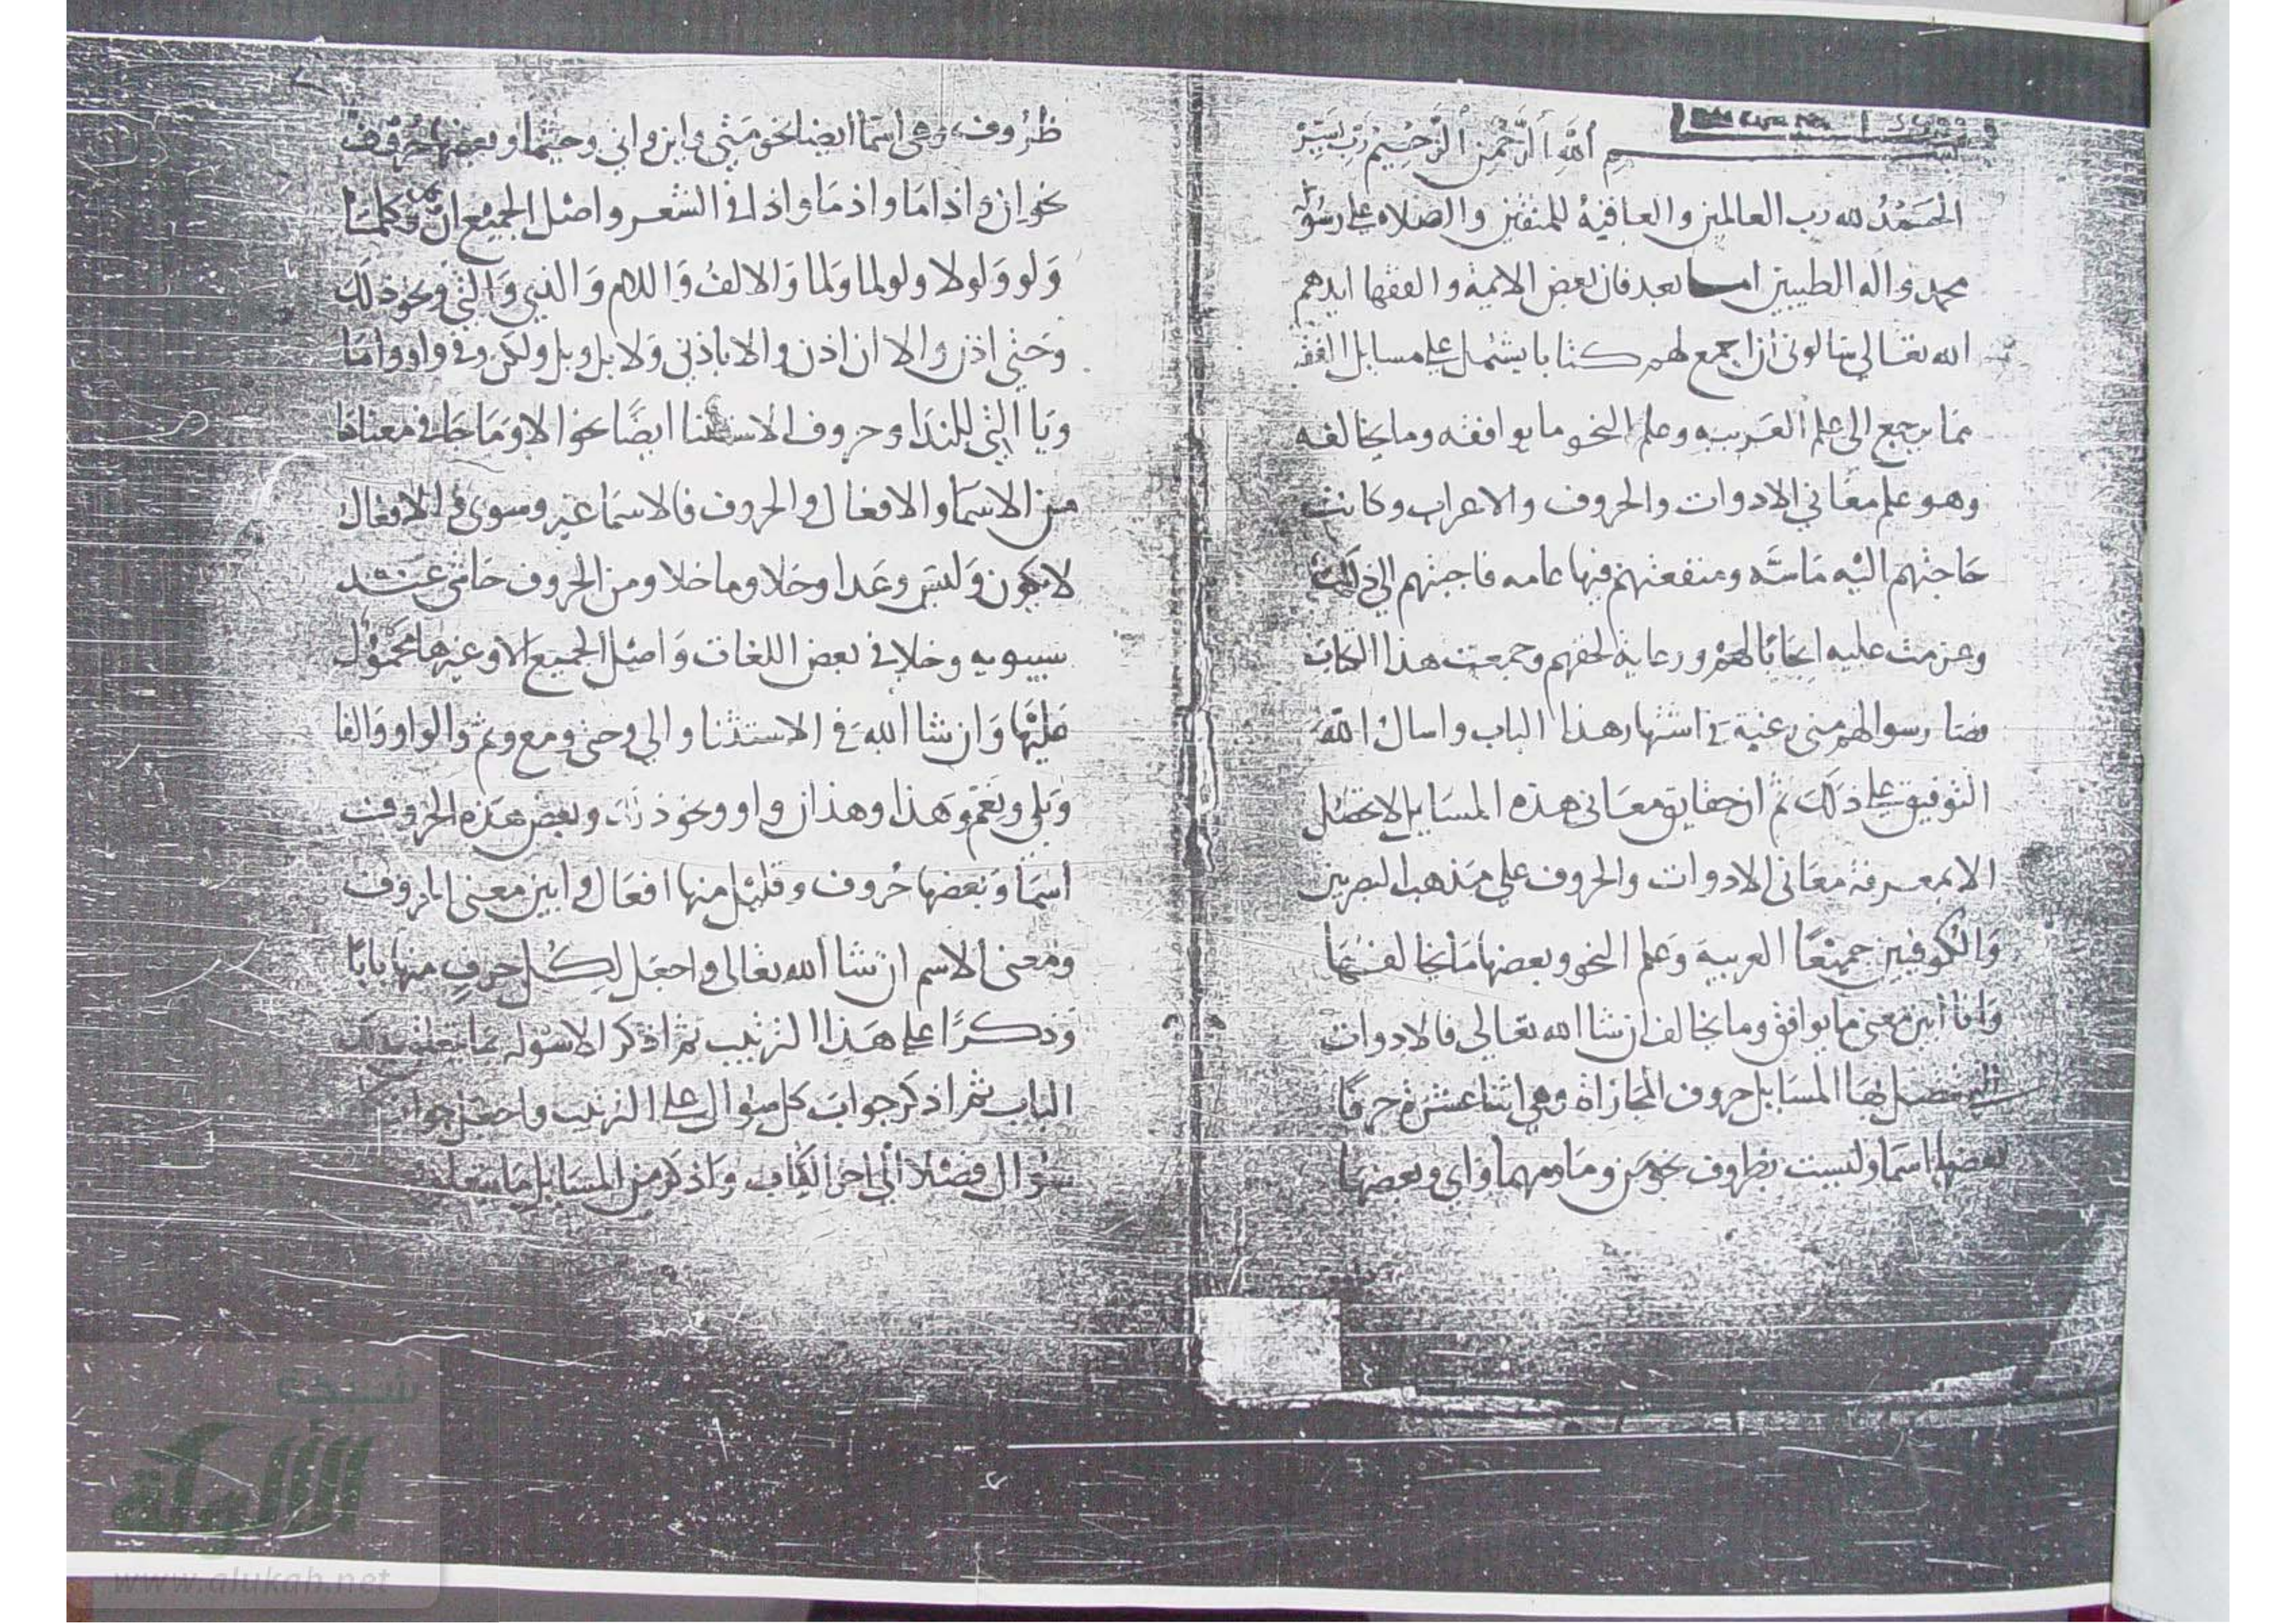 بسم الله الرحمن الرحيم رب يسر
الحمد لله رب العالمين والعاقبة للمتقين والصلاه على رسوله
محمد واله الطيبين اما بعد فان بعض الايمة والفقها ايدهم
الله تعالى سالونى ان اجمع لهم كتابا يشتمل على مسايل الفقه
مما يرجع الى علم العربيه وعلم النحو ما يوافقه وما يخالفه
وهو علم معاني الادوات والحروف والاعراب وكانت
حاجتهم اليه ماسة ومنفعتهم فيها عامه فاجبتهم الى ذلك
وعزمت عليه ايجابا لهم ورعاية لحقهم وجمعت هذا الكتاب
رغبة في اشتهار هذا الباب واسال الله
التوفيق على ذلك ثم ان حقايق معانى هذه المسايل لا تحصل
الا بمعرفة معانى الادوات والحروف على مذهب البصريين
والكوفيين جميعا العربية وعلم النحو وبعضها ما يخالفهما
وانا ابين معنى ما يوافق وما يخالف ان شا الله تعالى فالادوات
التى تتصل بها المسايل حروف المجازاة وهي اثنا عشرة حرفا
بعضها اسما وليست بظروف نحو من وما ومهما واى وبعضها
ظروف وهى اسما ايضا نحو متى واين وانى وحيثما وبعضها حروف
نحو ان و اذا ما واذ ما واذا فى الشعر واصل الجميع ان وكلما
ولو ولولا ولولما ولما والالف واللام والذي والتي ونحو ذلك
وحتى اذن والا ان اذن والا باذني ولا بل وبل ولكن وفى واو واما
ويا التي للندا وحروف الاستثنا ايضا نحو الا وما جا في معناها
من الاسما والافعال والحروف فالاسما غير وسوى و الافعال
لا يكون وليس وعدا وخلا وما خلا ومن الحروف حاشى عند
سيبويه وخلا في بعض اللغات واصل الجميع الا وغيرها محمول
عليها وان شا الله فى الاستثنا والى وحتى ومع وثم والواو والفا
وبلى ونعم وهذا وهذان واو ونحو ذلك وبعض هذه الحروف
اسما وبعضها حروف وقليل منها افعال وابين معنى الحروف
ومعنى الاسم ان شا الله تعالى واجعل لكل حرف منها بابا
وذكرا على هذا الترتيب ثم اذكر الاسوله بما يتعلق بذلك
الباب ثم اذكر جواب كل سوال على الترتيب واجعل جواب
سوال فصلا الى اخر الكتاب واذكر من المسايل ما يتعلق
شبكة
الألوكة
www.alukah.net